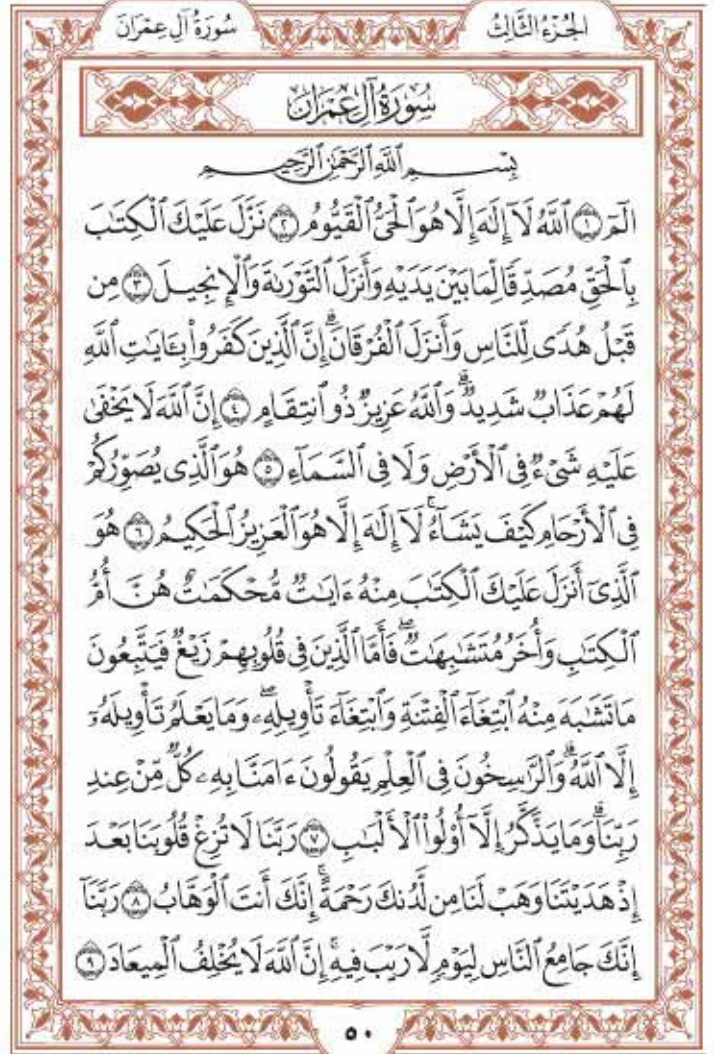 الجزء الثالث
سورة آل عمران
سُورَةُ آلِ عِمْرَان
بِسْمِ ٱللَّهِ ٱلرَّحْمَٰنِ ٱلرَّحِيمِ
الٓمٓ ١ ٱللَّهُ لَآ إِلَٰهَ إِلَّا هُوَ ٱلْحَىُّ ٱلْقَيُّومُ ٢ نَزَّلَ عَلَيْكَ ٱلْكِتَٰبَ
بِٱلْحَقِّ مُصَدِّقًا لِّمَا بَيْنَ يَدَيْهِ وَأَنزَلَ ٱلتَّوْرَىٰةَ وَٱلْإِنجِيلَ ٣ مِن
قَبْلُ هُدًى لِّلنَّاسِ وَأَنزَلَ ٱلْفُرْقَانَۗ إِنَّ ٱلَّذِينَ كَفَرُوا۟ بِـَٔايَٰتِ ٱللَّهِ
لَهُمْ عَذَابٌ شَدِيدٌۗ وَٱللَّهُ عَزِيزٌ ذُو ٱنتِقَامٍ ٤ إِنَّ ٱللَّهَ لَا يَخْفَىٰ
عَلَيْهِ شَىْءٌ فِى ٱلْأَرْضِ وَلَا فِى ٱلسَّمَآءِ ٥ هُوَ ٱلَّذِى يُصَوِّرُكُمْ
فِى ٱلْأَرْحَامِ كَيْفَ يَشَآءُۚ لَآ إِلَٰهَ إِلَّا هُوَ ٱلْعَزِيزُ ٱلْحَكِيمُ ٦ هُوَ
ٱلَّذِىٓ أَنزَلَ عَلَيْكَ ٱلْكِتَٰبَ مِنْهُ ءَايَٰتٌ مُّحْكَمَٰتٌ هُنَّ أُمُّ
ٱلْكِتَٰبِ وَأُخَرُ مُتَشَٰبِهَٰتٌۖ فَأَمَّا ٱلَّذِينَ فِى قُلُوبِهِمْ زَيْغٌ فَيَتَّبِعُونَ
مَا تَشَٰبَهَ مِنْهُ ٱبْتِغَآءَ ٱلْفِتْنَةِ وَٱبْتِغَآءَ تَأْوِيلِهِۦۖ وَمَا يَعْلَمُ تَأْوِيلَهُۥٓ
إِلَّا ٱللَّهُۗ وَٱلرَّٰسِخُونَ فِى ٱلْعِلْمِ يَقُولُونَ ءَامَنَّا بِهِۦ كُلٌّ مِّنْ عِندِ
رَبِّنَاۗ وَمَا يَذَّكَّرُ إِلَّآ أُو۟لُوا۟ ٱلْأَلْبَٰبِ ٧ رَبَّنَا لَا تُزِغْ قُلُوبَنَا بَعْدَ
إِذْ هَدَيْتَنَا وَهَبْ لَنَا مِن لَّدُنكَ رَحْمَةًۚ إِنَّكَ أَنتَ ٱلْوَهَّابُ ٨ رَبَّنَآ
إِنَّكَ جَامِعُ ٱلنَّاسِ لِيَوْمٍ لَّا رَيْبَ فِيهِۚ إِنَّ ٱللَّهَ لَا يُخْلِفُ ٱلْمِيعَادَ ٩
٥٠